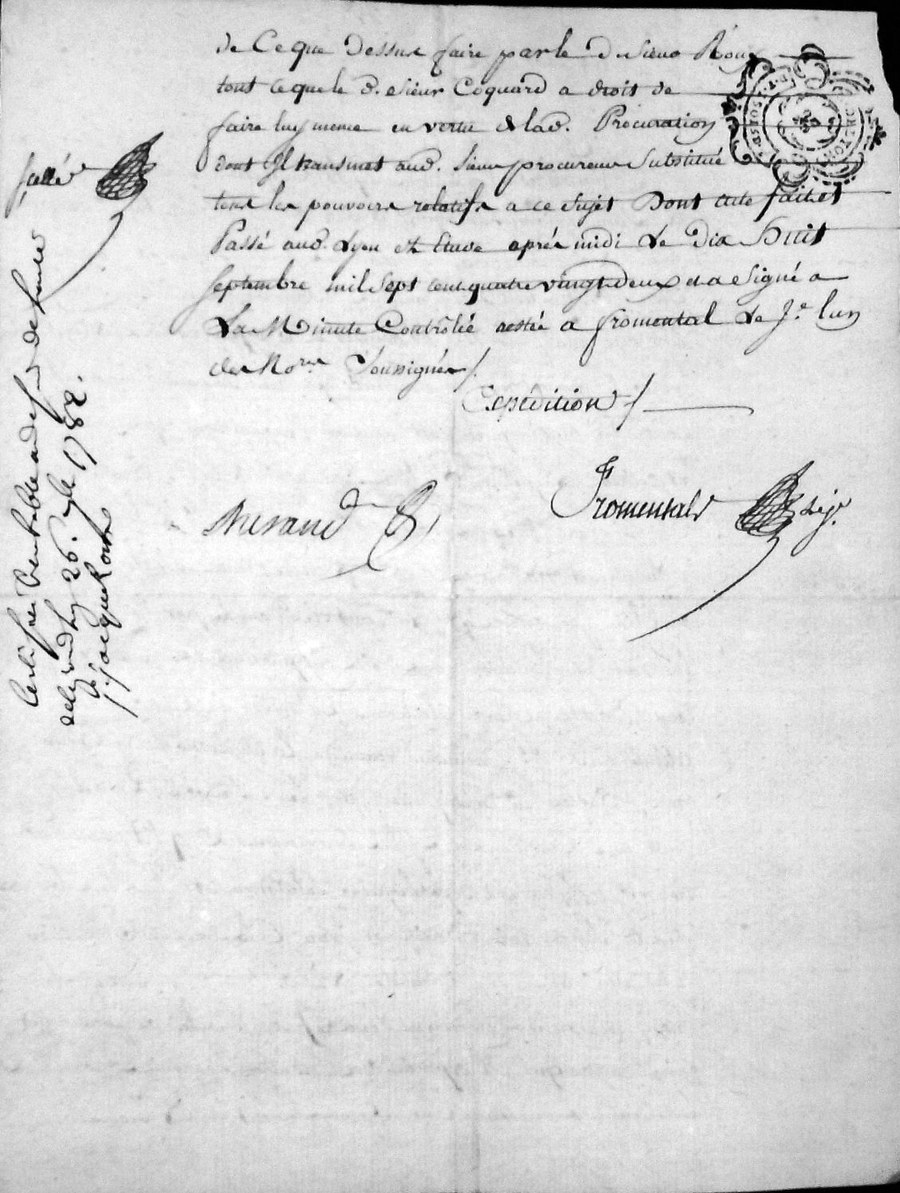 de Ce que Dessus faire par le d. sieur Roux
tout ce que le d. sieur Coquard a droit de
faire luy meme en vertu de lad. Procuration
dont Il transmet aud. Sieur procureur Substitué
tous les pouvoirs relatifs a ce sujet Dont acte fait et
Passé aud. Lyon et Etude après midi Le Dix Huit
septembre mil sept cent quatre vingt deux et a Signé a
La Minute Contrôlée restée a fromental Le Je. lun
des Nores. Soussignés /.
Expédition /.
Fromental
Scellé
Certifié Veritable au desir de
26. 7bre 1782.
Jacque Roux